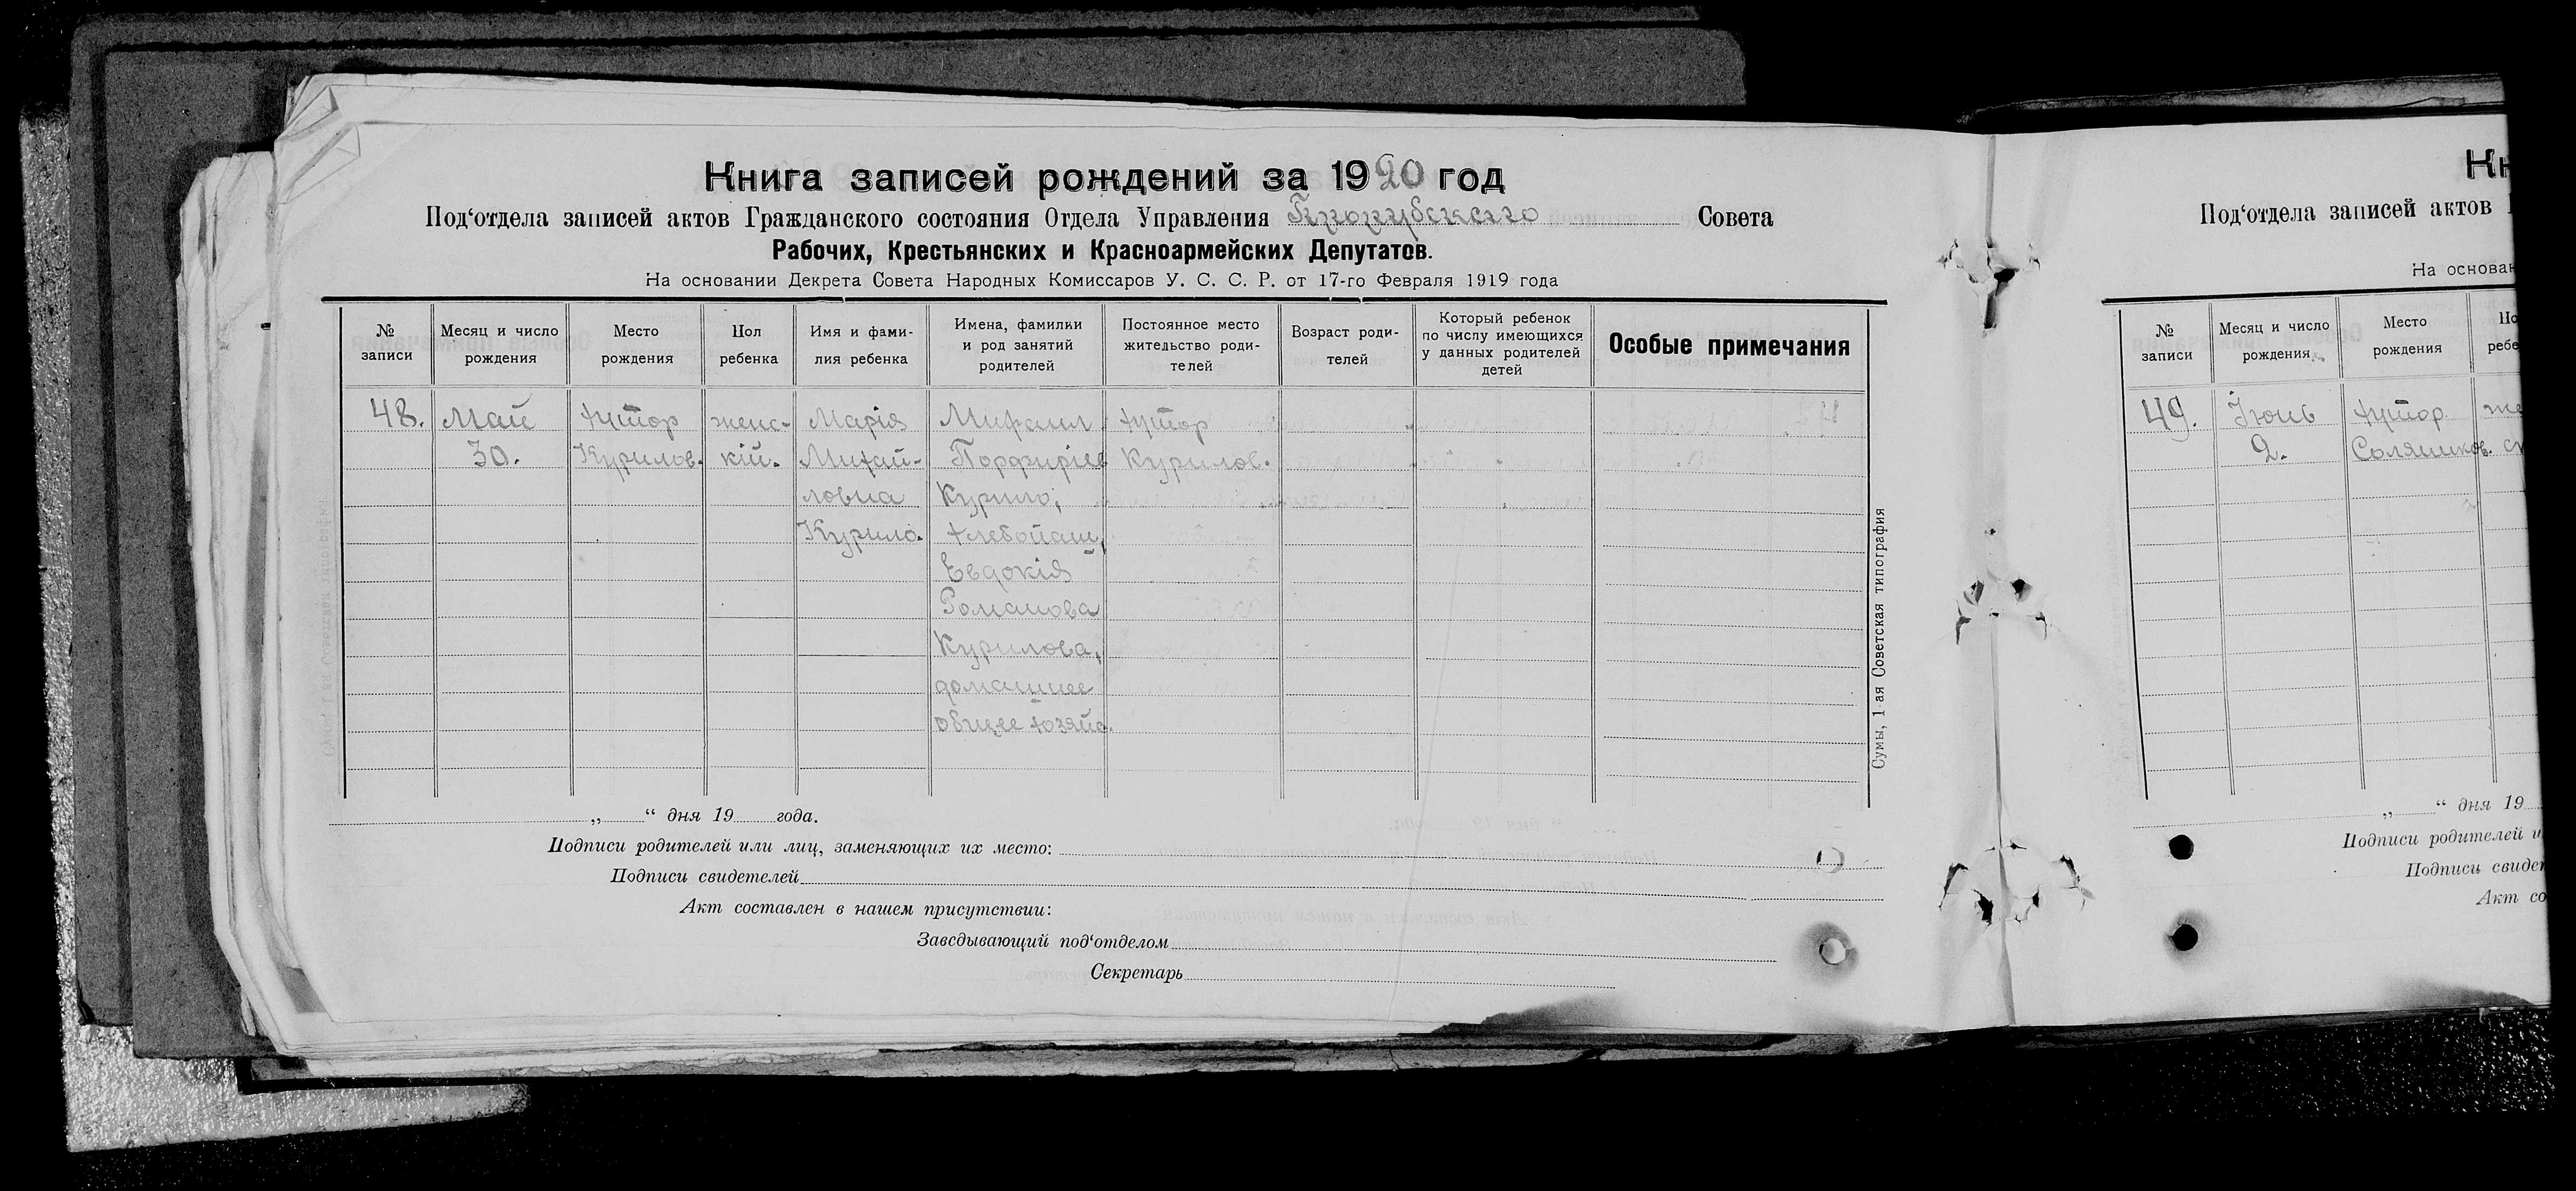 Книга записей рождений за 1920 год
Под‘отдела записей актов Гражданского состояния Отдела Управления Совета
Рабочих, Крестьянских и Красноармейских Депутатов.
На основании Декрета Совета Народных Комиссаров У. С. С. Р. от 17-го Февраля 1919 года
№ записи
Месяц и число рождения
Место рождения
Пол ребенка
Имя и фами-
лия ребенка
Имена, фамилии
и род занятий
родителей
Постоянное место
жительство роди-
телей
Возраст роди-
телей
Который ребенок
по числу имеющихся
у данных родителей
детей
Особые примечания
48.
Май
30.
хутор
Курилов.
женс-
кій.
Марія
Михай-
ловна
Курило.
Михаил
Порфиріев
Курило,
хлебопаш,
Евдокія
Романова
Курилова,
домашнее
общее хозяйс.
хутор
Курилов.
„ “ дня 19 года.
Подписи родителей или лиц, заменяющих их место:
Подписи свидетелей
Акт составлен в нашем присутствии:
Заведывающий под‘отделом
Секретарь
Сумы, 1-ая Советская типография
Кн
Под‘отдела записей актов
На основан
№ записи
Месяц и число рождения
Место рождения
По
ребе
49.
Іюнь
2.
хутор
Соляников.
же
ск
„ “ дня 19
Подписи родителей и
Подписи свидет
Акт со